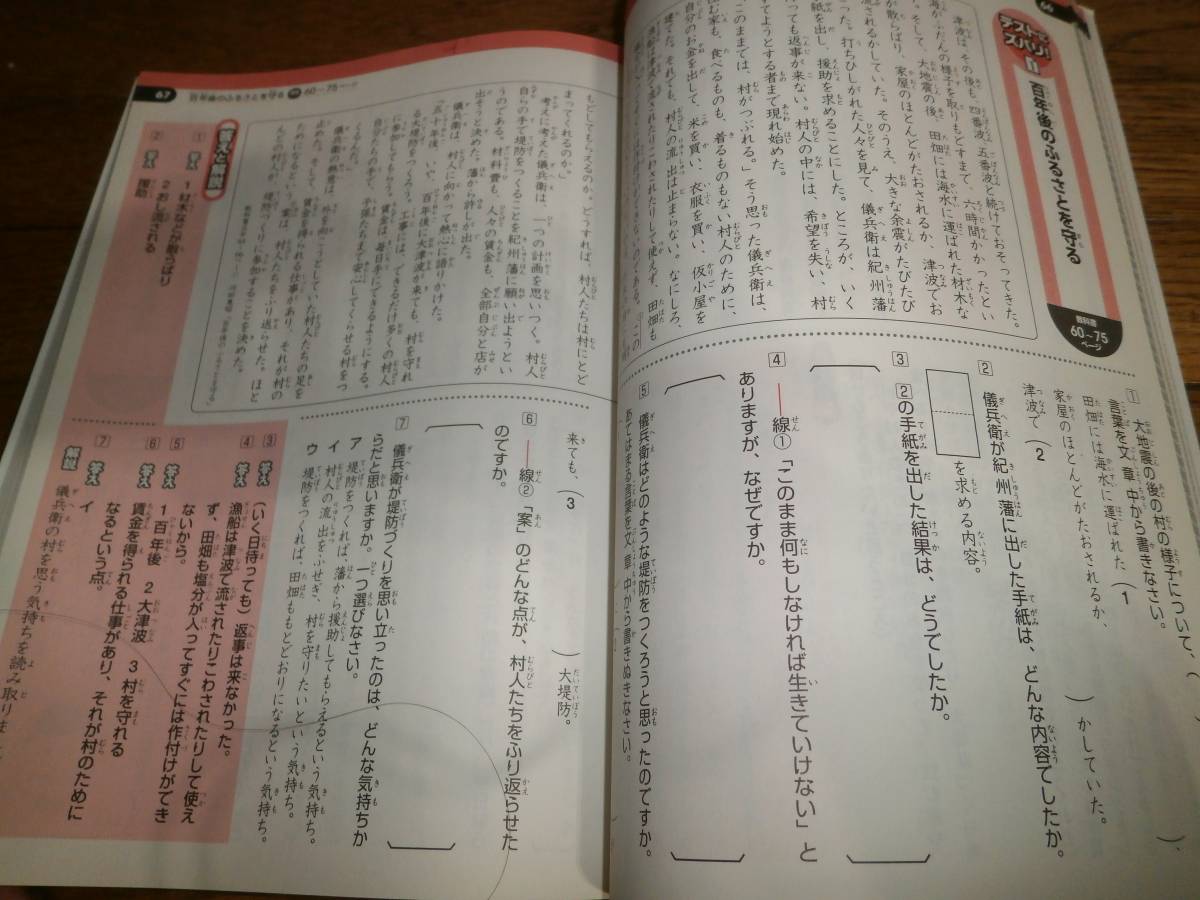 66
テストにズバリ!
1
百年後のふるさとを守る
教科書
60〜75
ページ
津波はその後も、四番波、五番波と続けておそってきた。
海がふだんの様子を取りもどすまで、六時間かかったとい
う。そして、大地震の後、田畑には海水に運ばれた材木な
が散らばり、家屋のほとんどがたおされるか、津波でお
流されるかしていた。そのうえ、大きな余震がたびたび
った。打ちひしがれた人々を見て、儀兵衛は紀州藩
紙を出し、援助を求めることにした。ところが、いく
っても返事が来ない。村人の中には、希望を失い、村
てようとする者まで現れ始めた。
このままでは、村がつぶれる。」そう思った儀兵衛は、
む家も、食べるものも、着るものもない村人のために、
自分のお金を出して、米を買い、衣服を買い、仮小屋を
建てた。それでも、村人の流出は止まらない。なにしろ、
漁船は津波で流されたりこわされたりして使えず、田畑も
もどしてもらえるのか。どうすれば、村人たちは村にとど
まってくれるのか。
考えに考えた儀兵衛は、一つの計画を思いつく。村人
自らの手で堤防をつくることを紀州藩に願い出ようとい
うのである。材料費も、人々の賃金も、全部自分と店が
出そうと決めた。藩から許しが出た。
儀兵衛は、村人に向かって熱心に語りかけた。
「五十年後、いや、百年後に大津波が来ても、村を守れ
る大堤防をつくろう。工事には、できるだけ多くの村人
に参加してもらう。賃金は、毎日手にできるようにする。
自分たちの手で、子孫たちまで安心してくらせる村をつ
くるんだ。」
儀兵衛の熱意は、外を向こうとしていた村人たちの足を
止めた。そして、賃金を得られる仕事があり、それが村の
ためになるという案は、村人たちをふり返らせた。ほと
んどの村人が、堤防づくりに参加することを決めた。
1 大地震の後の村の様子について、(
言葉を文章中から書きなさい。
田畑には海水に運ばれた(1 )、
家屋のほとんどがたおされるか、
津波で(2 )かしていた。
2 儀兵衛が紀州藩に出した手紙は、どんな内容でしたか。
を求める内容。
3 2の手紙を出した結果は、どうでしたか。
4 ――線①「このまま何もしなければ生きていけない」と
ありますが、なぜですか。
5 儀兵衛はどのような堤防をつくろうと思ったのですか。
あてはまる言葉を文章中から書きぬきなさい。
来ても、(3 )大堤防。
6 ――線②「案」のどんな点が、村人たちをふり返らせた
のですか。
7 儀兵衛が堤防づくりを思い立ったのは、どんな気持ちか
らだと思いますか。一つ選びなさい。
ア 堤防をつくれば、藩から援助してもらえるという気持ち。
イ 村人の流出をふせぎ、村を守りたいという気持ち。
ウ 堤防をつくれば、田畑ももとどおりになるという気持ち。
67
百年後のふるさとを守る
60〜75ページ
答えと解説
1 答え 1 材木などが散らばり
2 おし流される
2 答え 援助
3 答え (いく日待っても)返事は来なかった。
4 答え 漁船は津波で流されたりこわされたりして使え
ず、田畑も塩分が入ってすぐには作付けができ
ないから。
5 答え 1 百年後 2 大津波 3 村を守れる
6 答え 賃金を得られる仕事があり、それが村のために
なるという点。
7 答え イ
解説 儀兵衛の村を思う気持ちを読み取りま